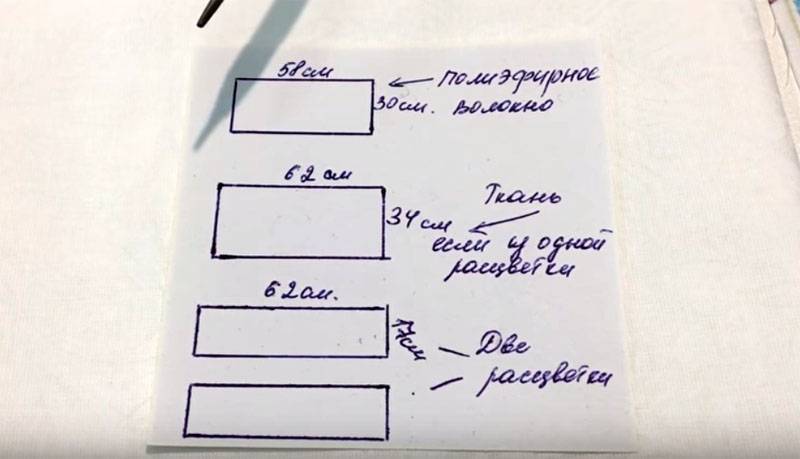 58см
полиэфирное
30см. волокно
62 см
Ткань
34см
если из одной
расцветки
62см.
17см
Две
расцветки